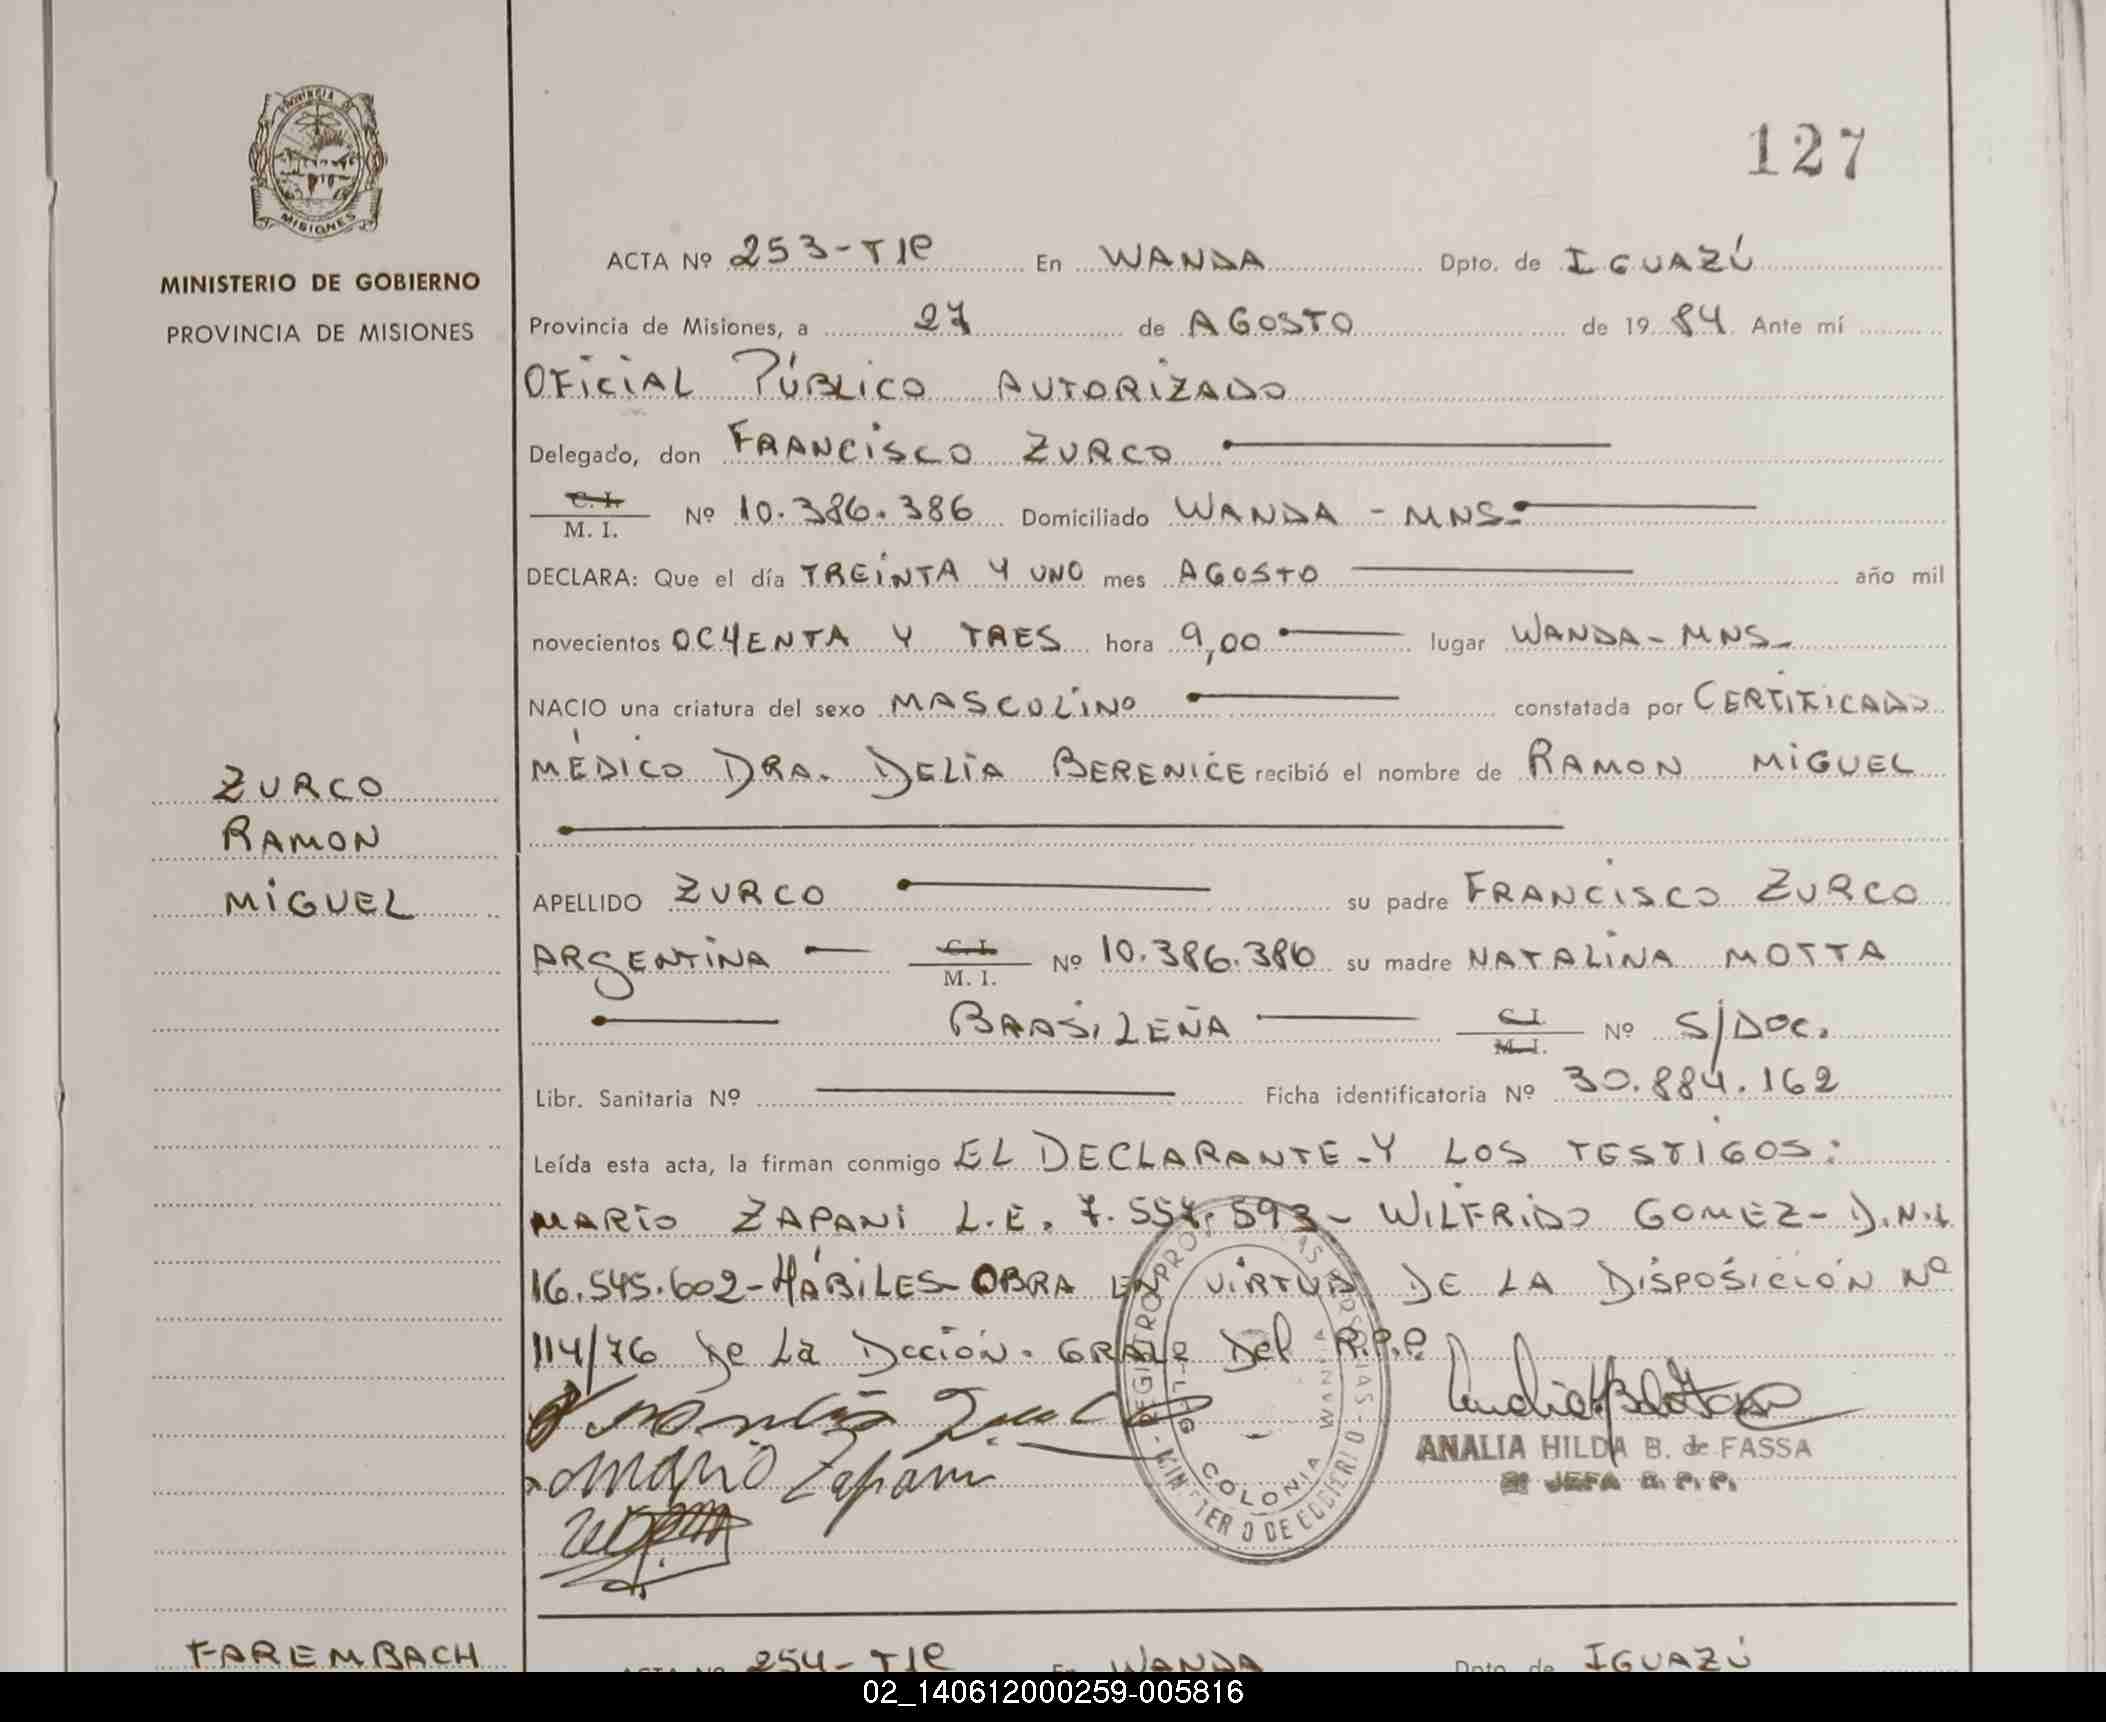 PROVINCIA DE
MISIONES
MINISTERIO DE GOBIERNO
PROVINCIA DE MISIONES
127
ACTA Nº 253-TIP En WANDA Dpto. de IGUAZÚ
Provincia de Misiones, a 27 de AGOSTO de 1984 Ante mí
OFICIAL PÚBLICO AUTORIZADO
Delegado, don FRANCISCO ZURCO
C. I.
M. I. Nº 10.386.386 Domiciliado WANDA - MNS.
DECLARA: Que el día TREINTA Y UNO mes AGOSTO año mil
novecientos OCHENTA Y TRES hora 9,00 lugar WANDA - MNS_
NACIO una criatura del sexo MASCULINO constatada por CERTIFICADO
MÉDICO DRA. DELIA BERENICE recibió el nombre de RAMON MIGUEL
ZURCO
RAMON
MIGUEL
APELLIDO ZURCO su padre FRANCISCO ZURCO
ARGENTINA C. I. M. I. Nº 10.386.386 su madre NATALINA MOTTA
BRASILEÑA C. I. M. I. Nº S/DOC.
Libr. Sanitaria Nº Ficha identificatoria Nº 30.884.162
Leída esta acta, la firman conmigo EL DECLARANTE - Y LOS TESTIGOS:
MARIO ZAPANI L.E. 7.557.593 - WILFRIDO GOMEZ - D.N.I.
16.545.602 - HÁBILES - OBRA EN VIRTUD DE LA DISPOSICIÓN Nº
114/76 De La Dcción. GRAL Del R.P.P.
Mario Zapani
COLONIA
WANDA
ANALIA HILDA B. de FASSA
JEFA R. P. P.
FAREMBACH
ACTA Nº 254-TIP En WANDA Dpto. de IGUAZÚ
02_140612000259-005816